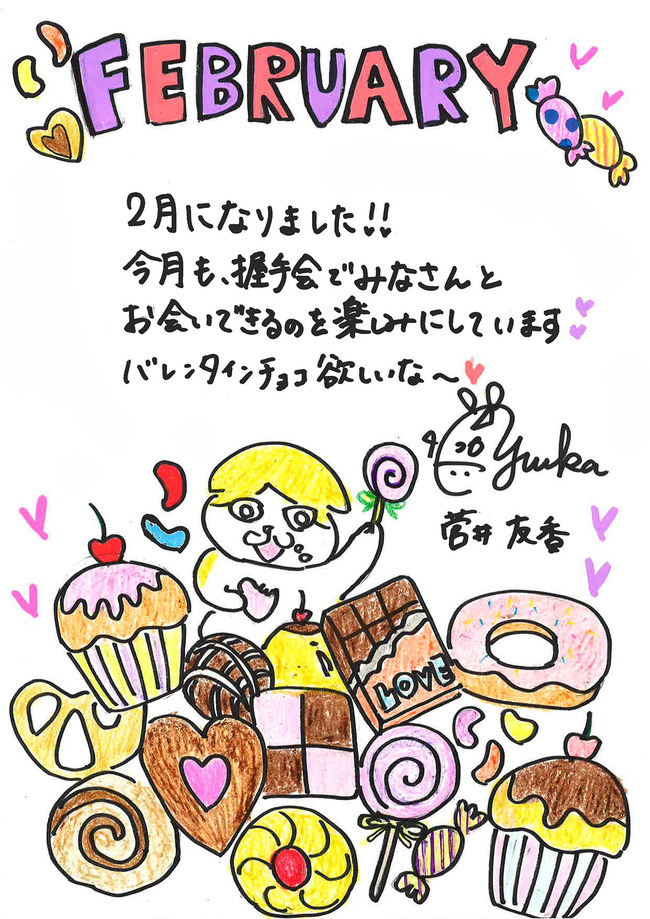 FEBRUARY
2月になりました!!
今月も、握手会でみなさんと
お会いできるのを楽しみにしています
バレンタインチョコ欲しいな〜
Yuuka
菅井友香
LOVE